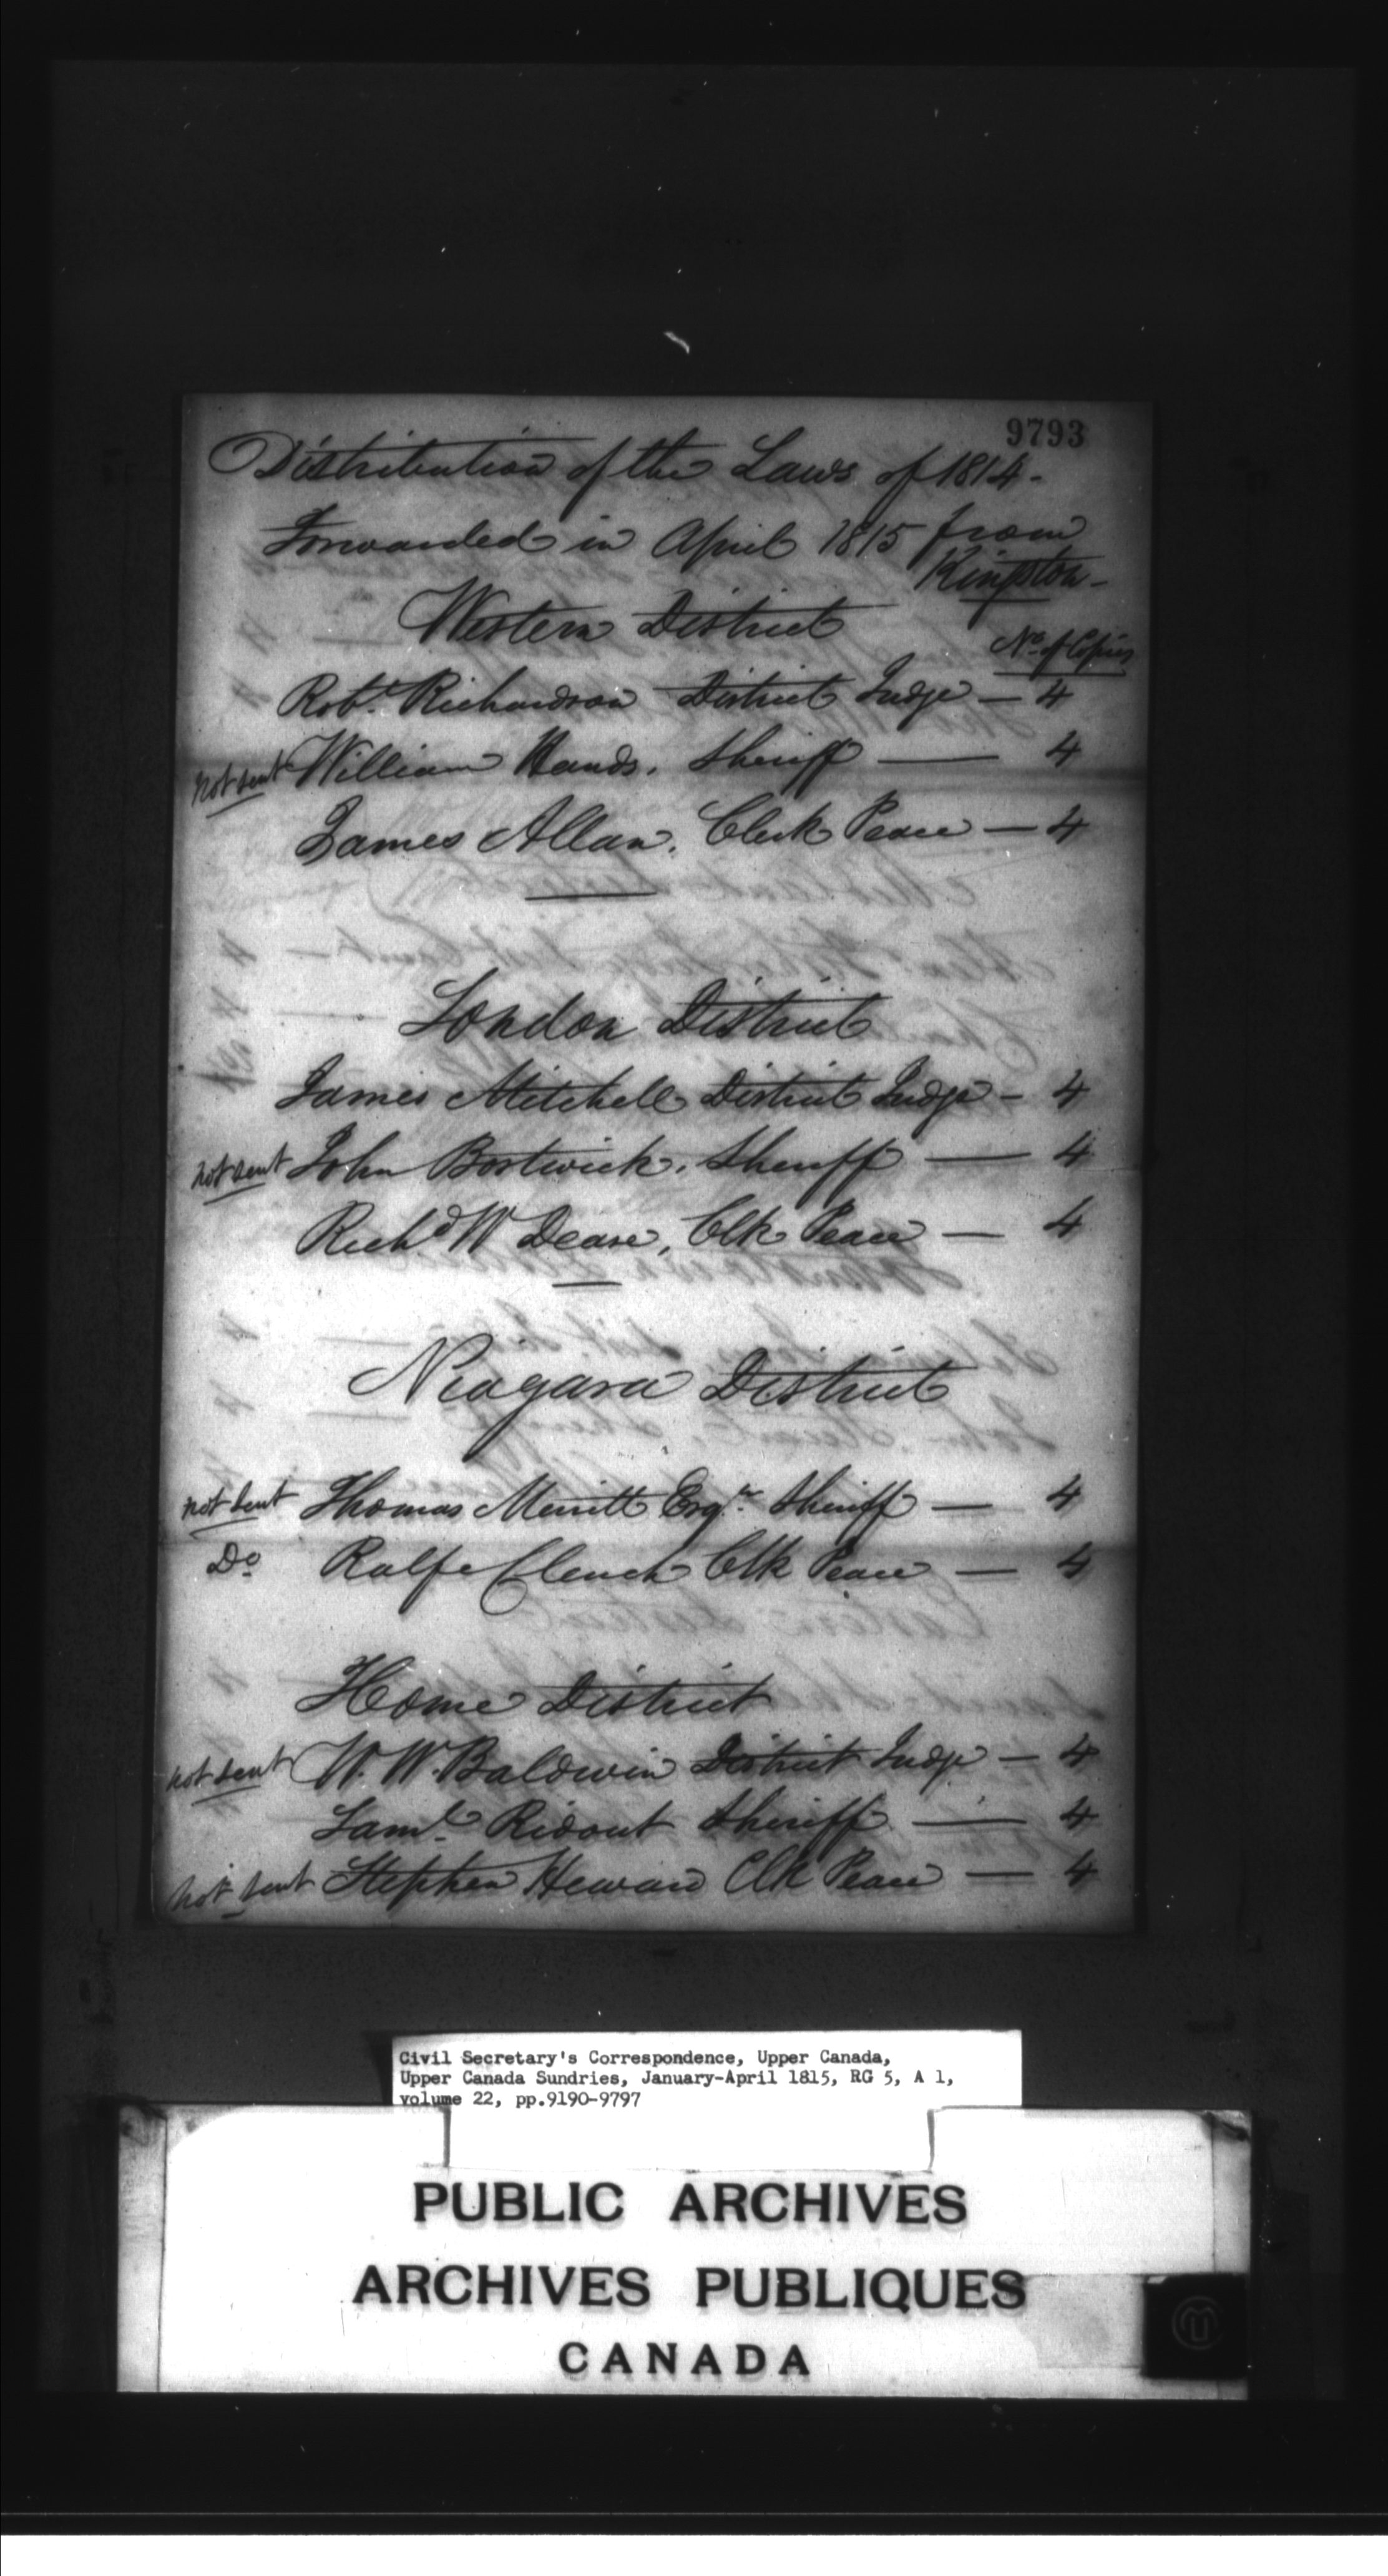 9793
Distribution of the Laws of 1814.
Forwarded in April 1815 from
Kingston-
Western District
No. of Copies
Robt. Richardson District Judge — 4
not sent William Hands, Sheriff — 4
James Allan, Clerk Peace — 4
London District
James Mitchell District Judge — 4
not sent John Bostwick, Sheriff — 4
Richd W Dease, Clk Peace — 4
Niagara District
not sent Thomas Merritt Esqr. Sheriff — 4
Do Ralfe Clench Clk Peace — 4
Home District
not sent W. W. Baldwin District Judge — 4
Saml. Ridout Sheriff — 4
not sent Stephen Heward Clk Peace — 4
Civil Secretary's Correspondence, Upper Canada,
Upper Canada Sundries, January-April 1815, RG 5, A 1,
volume 22, pp.9190-9797
PUBLIC ARCHIVES
ARCHIVES PUBLIQUES
CANADA